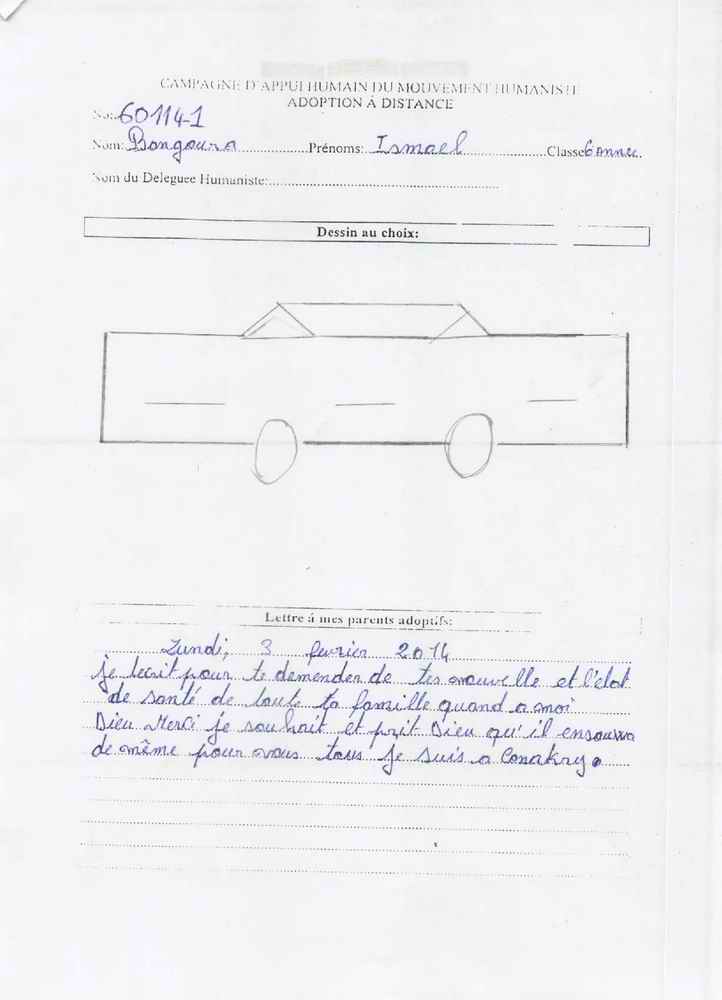 CAMPAGNE D'APPUI HUMAIN DU MOUVEMENT HUMANISTE
ADOPTION À DISTANCE
No: 60114-1
Nom: Bangoura Prénoms: Ismael Classe 6 annee
Nom du Deleguee Humaniste:
Dessin au choix:
Lettre á mes parents adoptifs:
Lundi, 3 fevrier 2014
je tecrit pour te demender de tes nouvelle et l'etat
de santé de toute ta famille quand a moi
Dieu Merci je souhait et prit Dieu qu'il ensoura
de même pour vous tous je suis a Conakry.